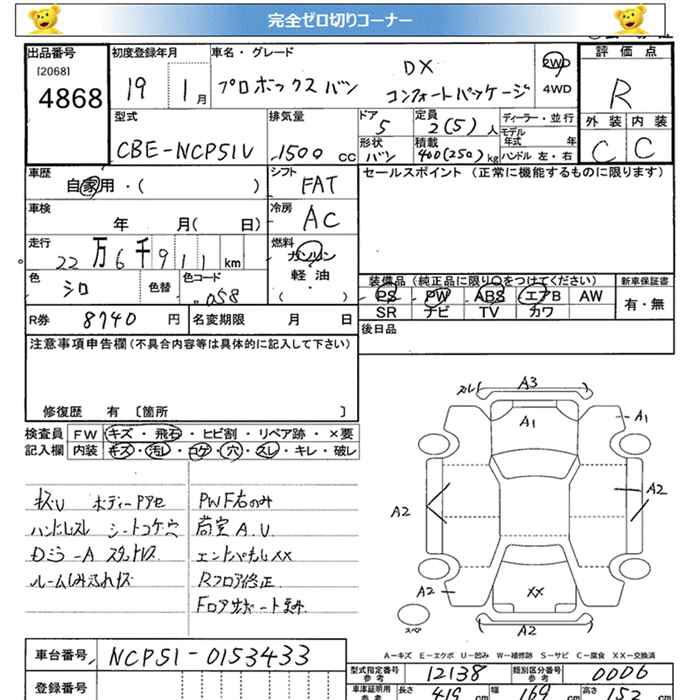 完全ゼロ切りコーナー
出品番号
(2068)
4868
初度登録年月
19 1月
車名・グレード
プロボックスバン DX コンフォートパッケージ
2WD
4WD
評価点
R
外装 内装
C C
型式
CBE-NCP51V
排気量
1500 cc
ドア
5
形状
バン
定員
2(5)人
積載
400(250)kg
ディーラー・並行
モデル年式 年
ハンドル 左・右
車歴
自家用・( )
シフト
FAT
セールスポイント (正常に機能するものに限ります)
車検
年 月( 日)
冷房
AC
走行
22万6千911km
燃料
ガソリン
軽・油
( )
色
シロ
色替
色コード
058
装備品(純正品に限り○をつけてください)
PS PW ABS エアB AW
SR ナビ TV カワ
新車保証書
有・無
R券 8740円
名変期限 月 日
後日品
注意事項申告欄(不具合内容等は具体的に記入して下さい)
修復歴 有 〔箇所 〕
検査員記入欄
FW キズ・飛石・ヒビ割・リペア跡・×要
内装 キズ・汚レ・コゲ・穴・スレ・キレ・破レ
キズU ボディーPアセ
ハンドルスレ シートコゲ穴
ルームしみ汚れキズ
PWF右のみ
荷室A.U
Rフロア修正
スレ A3
A1
A1
A2
A2
A2
XX
スペア
A2
A-キズ E-エクボ U-凹み W-補修跡 S-サビ C-腐食 XX-交換済
車台番号
NCP51-0153433
登録番号
型式指定番号参考
12138
類別区分番号参考
0006
車庫証明用参考
長さ 419 cm
幅 169 cm
高さ 152 cm